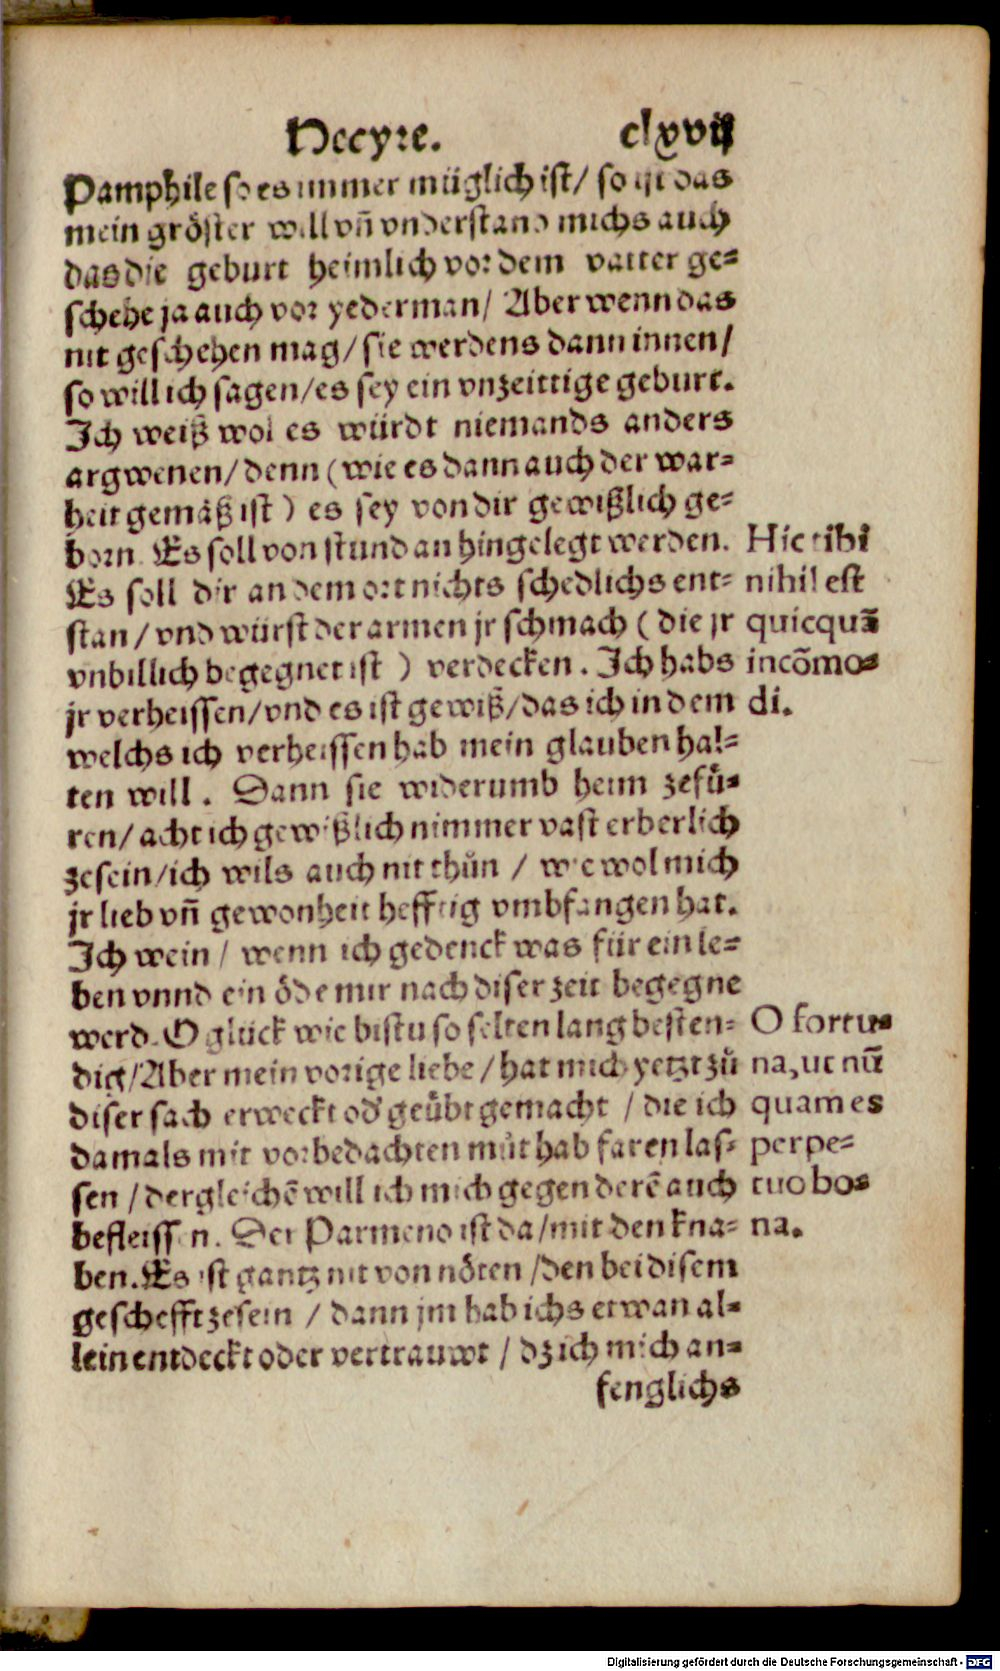 Hecyre. clxvij
Pamphile so es immer müglich ist/ so ist das
mein gröster will vñ vnderstand michs auch
das die geburt heimlich vor dem vatter ge=
schehe ja auch vor yederman/ Aber wenn das
nit geschehen mag/ sie werdens dann innen/
so will ich sagen/ es sey ein vnzeittige geburt.
Ich weiß wol es würdt niemands anders
argwenen/ denn (wie es dann auch der war=
heit gemäß ist) es sey von dir gewißlich ge=
born. Es soll von stund an hingelegt werden.
Es soll dir an dem ort nichts schedlichs ent=
stan/ vnd würst der armen jr schmach (die jr
vnbillich begegnet ist) verdecken. Ich habs
jr verheissen/ vnd es ist gewiß/ das ich in dem
welchs ich verheissen hab mein glauben hal=
ten will. Dann sie widerumb heim zefuͤ=
ren/ acht ich gewißlich nimmer vast erberlich
zesein/ ich wils auch nit thuͦn / wiewol mich
jr lieb vñ gewonheit hefftig vmbfangen hat.
Ich wein/ wenn ich gedenck was für ein le=
ben vnnd ein öde mir nach diser zeit begegne
werd. O glück wie bistu so selten lang besten=
dig/ Aber mein vorige liebe/ hat mich yetzt zuͦ
diser sach erweckt oď geuͤbt gemacht / die ich
damals mit vorbedachten muͦt hab faren las=
sen/ dergleichē will ich mich gegen derē auch
befleissen. Der Parmeno ist da/ mit den kna=
ben. Es ist gantz nit von nöten/ den bei disem
geschefft zesein / dann jm hab ichs etwan al=
lein entdeckt oder vertrauwt / dz ich mich an=
fenglichs
Hic tibi
nihil est
quicquā
incōmo=
di.
O fortu=
na, ut nū
quam es
perpe=
tuo bo=
na.
Digitalisierung gefördert durch die Deutsche Forschungsgemeinschaft - DFG